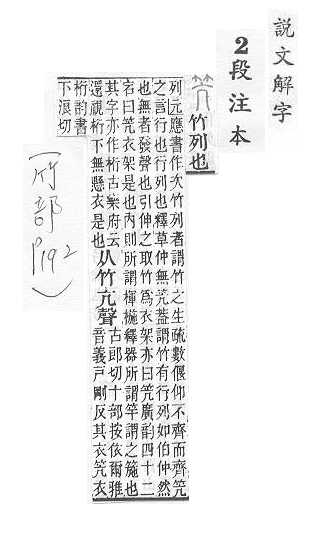 說文解字
2段注本
笐
竹列也
列元應書作次竹列者謂竹之生疏數偃仰不齊而齊笐
之言行也行列也釋草仲無笐蓋謂竹有行列如伯仲然
也無者發聲也引伸之取竹爲衣架亦曰笐廣韵四十二
宕曰笐衣架是也内則所謂楎椸釋器所謂竿謂之箷也
其字亦作桁古樂府云
還視桁下無懸衣是也
从竹亢聲
古郎切十部按依爾雅
音義戶剛反其衣笐衣
桁韵書
下浪切
(竹部 P192)